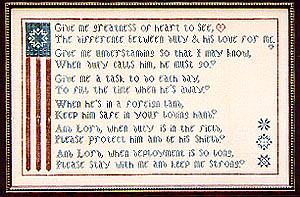 Give me greatness of heart to see,
The difference between duty & his love for me.
Give me understanding so that I may know,
When duty calls him, he must go.
Give me a task to do each day,
To fill the time when he's away.
When he's in a foreign land,
Keep him safe in your loving hand.
And Lord, when duty is in the field,
Please protect him and be his shield.
And Lord, when deployment is so long,
Please stay with me and keep me strong.